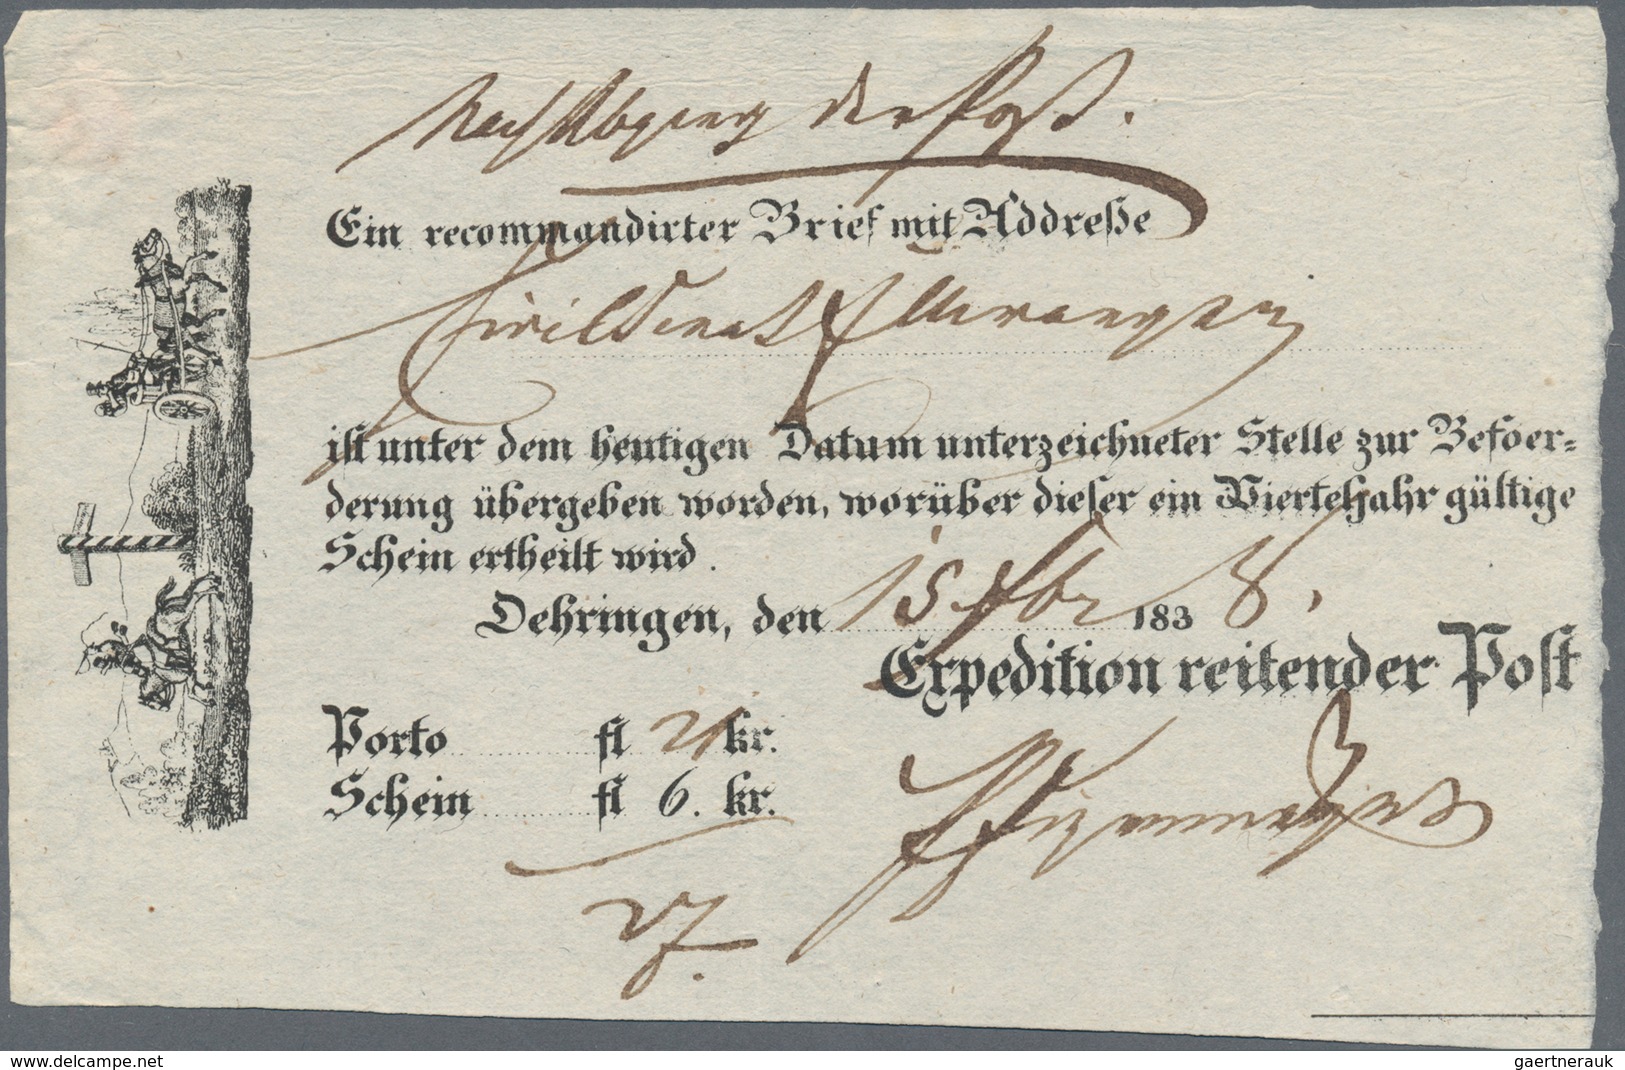 Nach Abgang der Post.
Ein recommandirter Brief mit Addreße
Civil Senat Ellwangen
ist unter dem heutigen Datum unterzeichneter Stelle zur Befoer-
derung übergeben worden, worüber dieser ein Vierteljahr gültige
Schein ertheilt wird.
Oehringen, den 15 Fbr 1838.
Expedition reitender Post
Porto fl 21 kr.
Schein fl 6. kr.
27.
www.delcampe.net
gaertnerauk